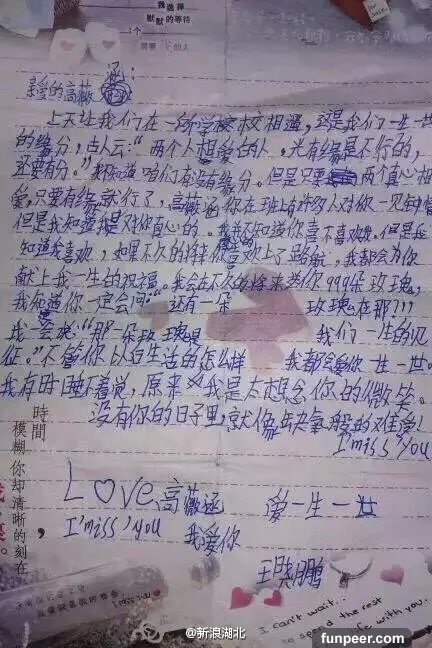 我选择
默默的等待
1个
需要 的人
亲爱的高薇涵:
上天让我们在一所学校校相遇,这是我们一生一世
的缘分,古人云:“两个人想爱的人,光有缘是不行的,
还要有分。”我知道咱们有没有缘分。但是只要两个真心相
爱,只要有缘就行了,高薇涵你在班上有许多人对你一见钟情
但是我知道我是对你真心的。我并不知道你喜不喜欢我,但是我
知道我喜欢,如果不久的将来你喜欢上了路航,我都会为你
献上我一生的祝福。我会在不久的将来送你999朵玫瑰,
我知道你一定会问:还有一朵 玫瑰在那???
我会说:“那一朵玫瑰是 我们一生的见
证。”不管你以后生活的怎么样 我都会爱你一生一世。
我有时睡不着觉,原来我是太想念你的微笑。
没有你的日子里,就像缺氧般的难受!
I'miss'you
時間,
模糊你却清晰的刻在
Love高薇涵 爱一生一世
I'miss'you 我爱你
王晓鹏
I can't wait...
to spend the rest
fe with you.
I miss you
@新浪湖北
funpeer.com